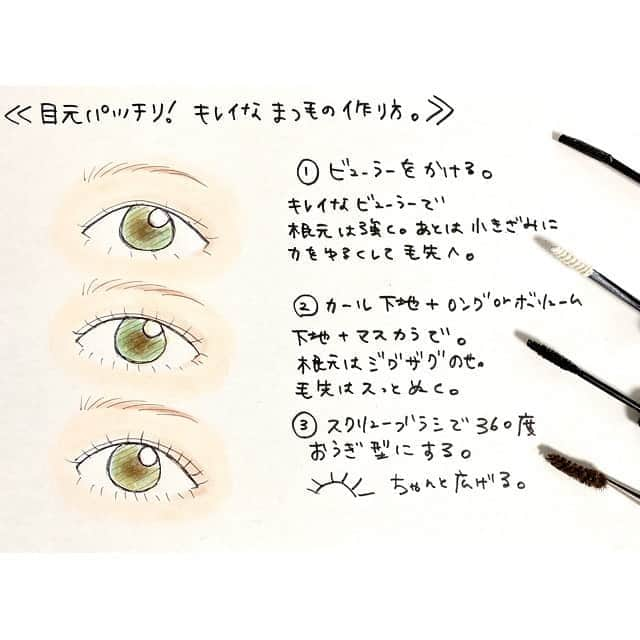 ≪目元パッチリ! キレイな まつ毛の作り方。≫
① ビューラーをかける。
キレイなビューラーで
根元は強く。あとは小きざみに
力をゆるくして毛先へ。
② カール下地+ロングorボリューム
下地+マスカラで。
根元はジグザグのせ。
毛先はスッとぬく。
③ スクリューブラシで360度
おうぎ型にする。
ちゃんと広げる。